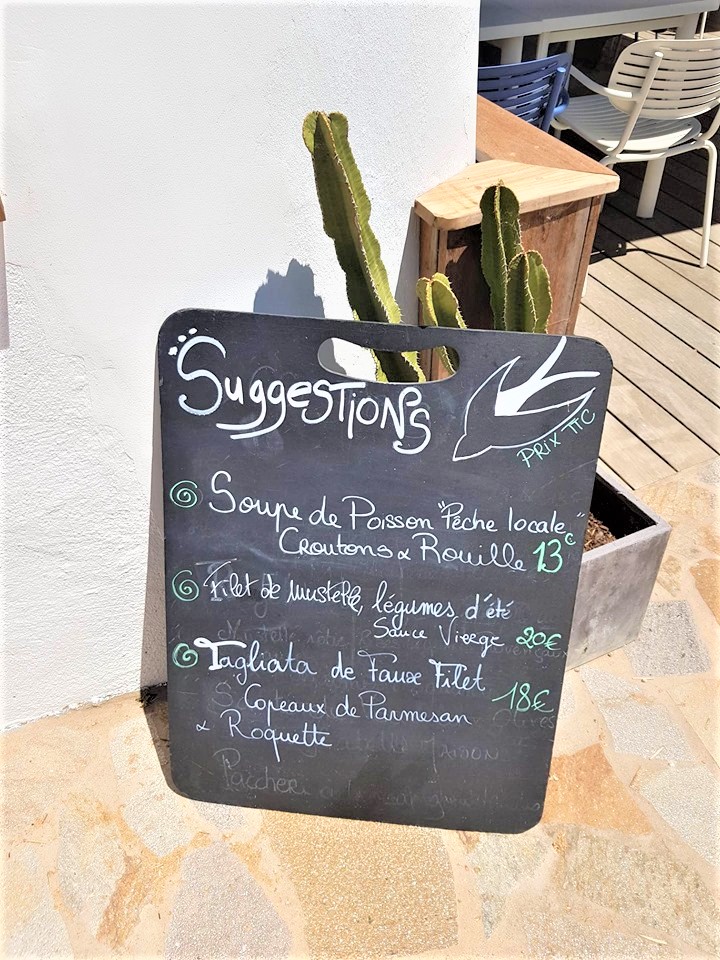 Suggestions
Prix TTC
Soupe de Poisson "Pêche locale"
Croutons & Rouille 13€
Filet de Mustelle, légumes d'été
Sauce Vierge 20€
Tagliata de Faux Filet
Copeaux de Parmesan 18€
& Roquette
Maison
Paccheri